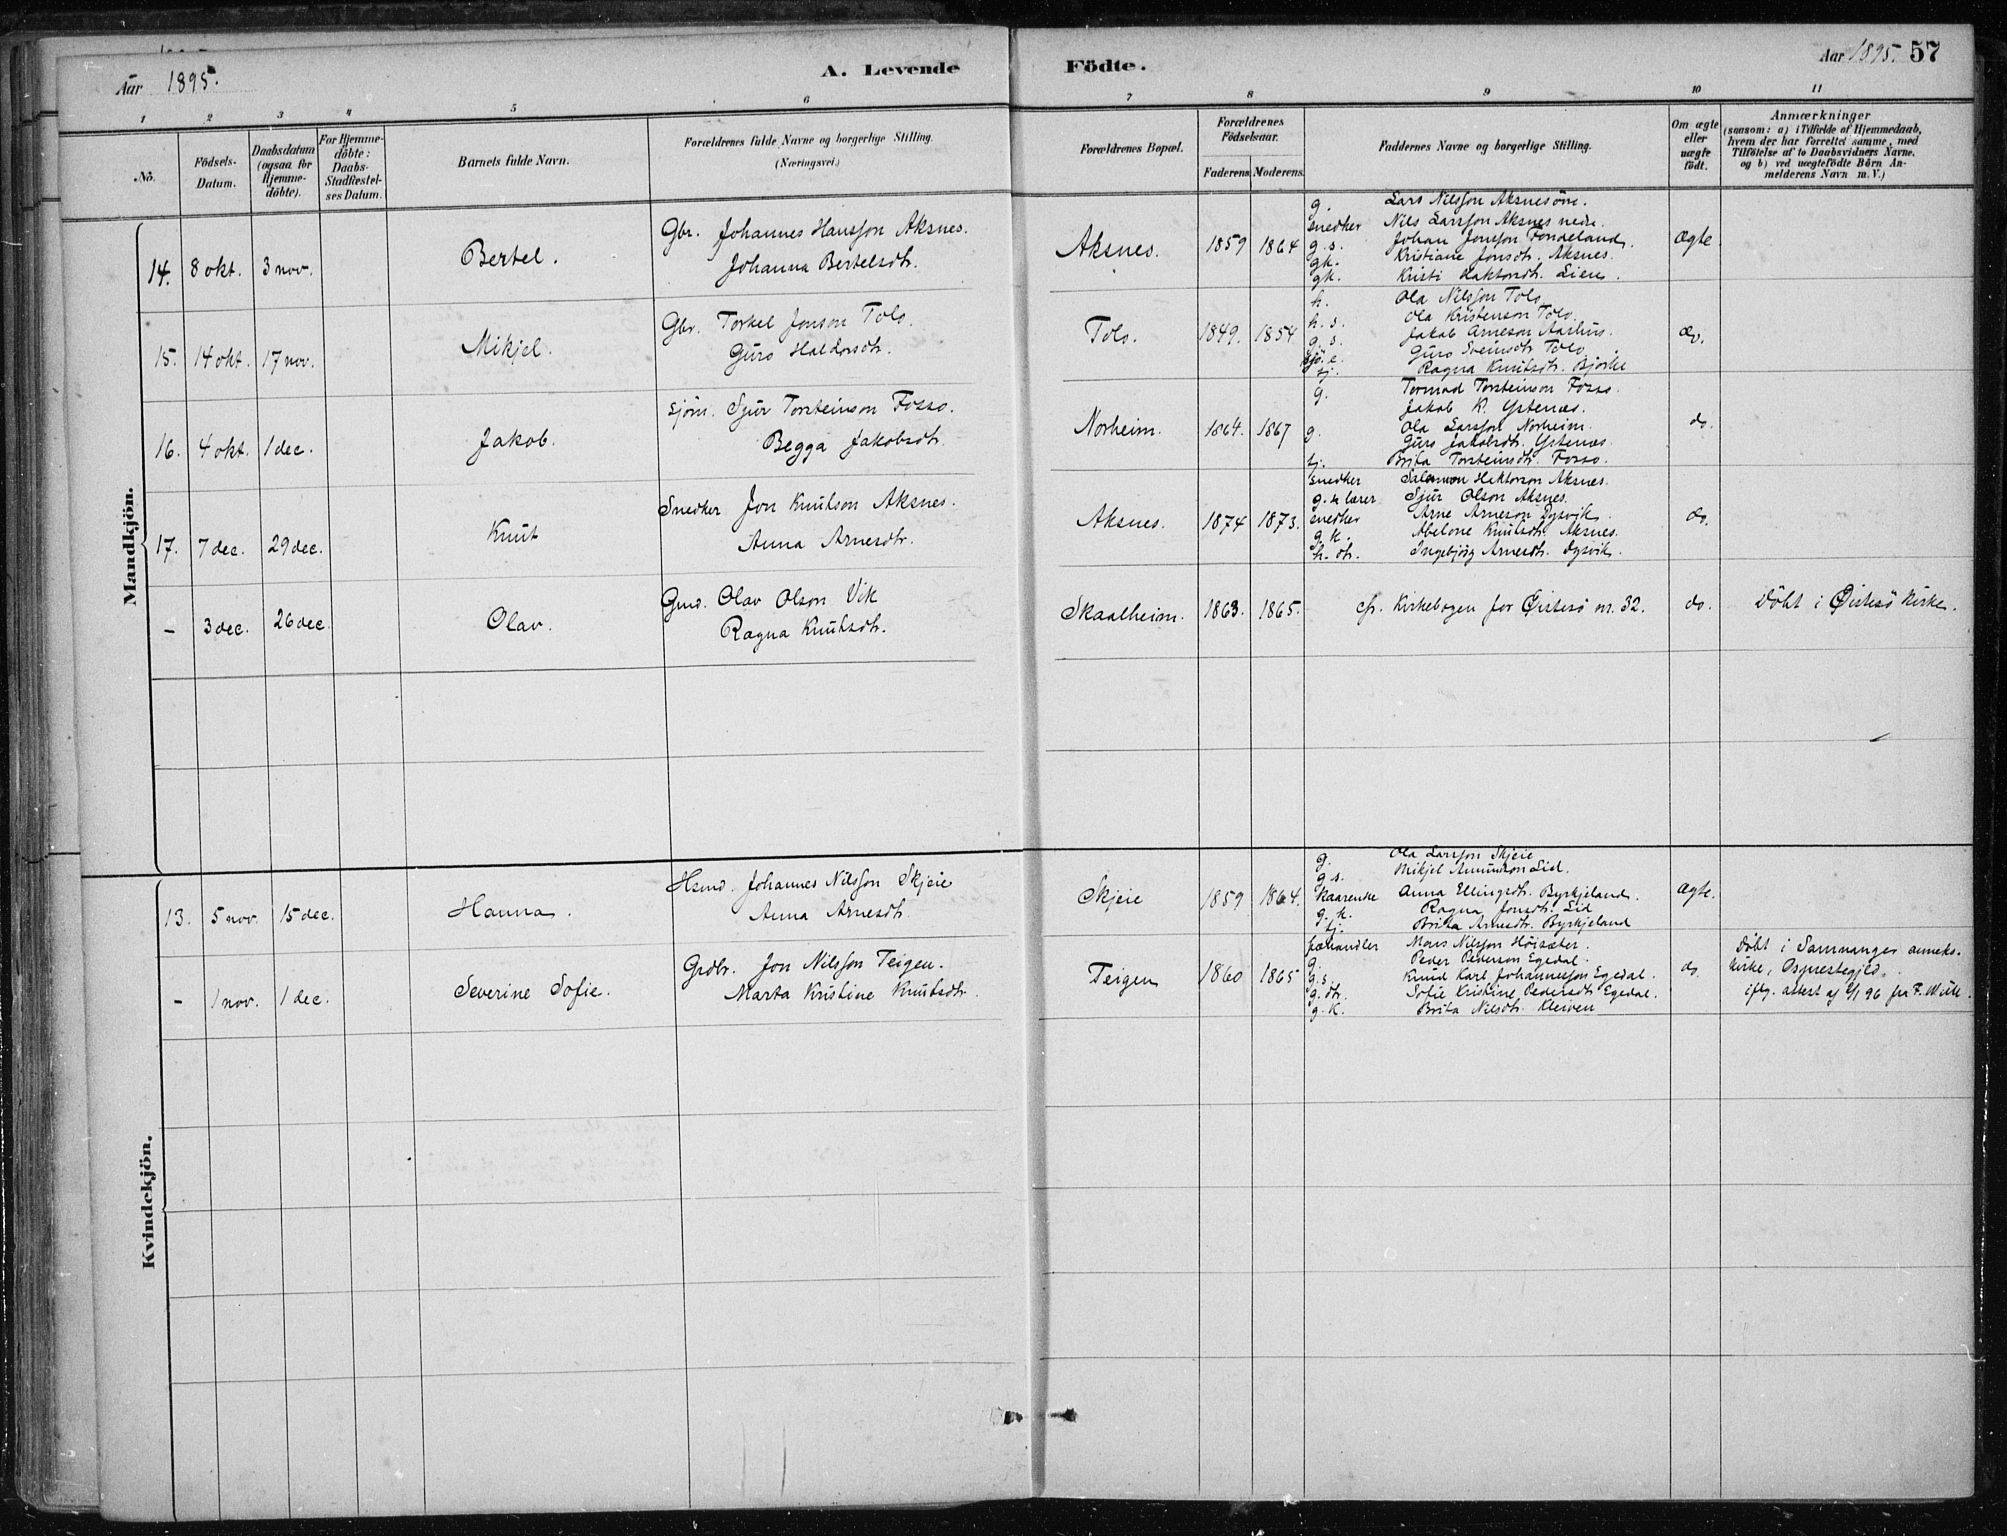 Aar 1895. A. Levende Födte. Aar 1895. 57
1 2 3 4 5 6 7 8 9 10 11
No.
Födsels-
Datum.
Daabsdatum
(ogsaa for
Hjemme-
döbte).
For Hjemme-
döbte:
Daabs-
Stadfæstel-
ses Datum.
Barnets fulde Navn.
Forældrenes fulde Navne og borgerlige Stilling.
(Næringsvei.)
Forældrenes Bopæl.
Forældrenes
Födselsaar.
Faderens. Moderens.
Faddernes Navne og borgerlige Stilling.
Om ægte
eller
uægte
födt.
Anmærkninger
(saasom: a) i Tilfælde af Hjemmedaab,
hvem der har forrettet samme, med
Tilföielse af to Daabsvidners Navne,
og b) ved uægtefödte Börn An-
melderens Navn m. V.)
Mandkjön.
14. 8 okt. 3 nov. Bertel.
Gbr. Johannes Hansson Aksnes.
Johanna Bertelsdtr.
Aksnes. 1859 1864
g. Lars Nilsson Aksnes
snedker Nils Larsson Aksnes nedre.
g. s. Johan Jonsson Fondeland.
gk. Kristiane Jonsdtr. Aksnes.
gk. Kristi Haktorsdtr. Lien.
Ægte
15. 14 okt. 17 nov. Mikjel.
Gbr. Torkel Jonson Tolo.
Guro Haldorsdtr.
Tolo. 1849. 1854
h. Ola Nilsson Tolo
h. s. Ola Kristenson Tolo.
g. s. Jakob Arneson Aarhus.
Guro Sveinsdtr Tolo
tj. Ragna Knutsdtr. Bjorke
do.
16. 4 okt. 1 dec. Jakob.
sjøm. Sjur Torsteinson Fosso.
Begga Jakobsdtr
Norheim. 1864. 1867
g. Tormod Torsteinson Fosso
Jakob K. Ystenæs.
g. Ola Larsson Norheim.
Guro Jakobsdtr. Ystenæs.
tj. Brita Torsteinsdtr. Fosso.
do.
17. 7 dec. 29 dec. Knut
Snedker Jon Knutson Aksnes.
Anna Arnesdtr.
Aksnes. 1874 1873.
snedker Salomon Haktorson Aksnes.
g. & lærer Sjur Olson Aksnes.
snedker Arne Arneson Dysvik.
g. k. Abelone Knutsdtr. Aksnes.
h. dtr. Ingebjørg Arnesdtr. Dysvik.
do.
– 3 dec. 26 dec. Olav.
Gmd. Olav Olson Vik
Ragna Knutsdtr.
Skaalheim. 1863. 1865.
cfr. Kirkebogen for Øistesø nr. 32. do. Döbt i Øistesø Kirke.
Kvindekjön.
13. 5 nov. 15 dec. Hanna.
Hsmd. Johannes Nilsson Skjeie
Anna Arnesdtr.
Skjeie 1859 1864.
g. Ola Larsson Skjeie
g s. Mikjel Amundson Lid.
kaarenke Anna Ellingsdtr. Byrkjeland.
g. k. Ragna Jonsdtr. Lid
tj. Brita Arnesdtr. Byrkjeland
Ægte.
– 1 nov. 1 dec. Severine Sofie.
Grdbr. Jon Nilsson Teigen.
Marta Kristine Knutsdtr.
Teigen 1860 1865
fæhandler Mons Nilsson Höisæter.
g. Peder Pederson Egedal.
g. s. Knud Karl Johannesson Egedal.
g. dtr. Sofie Kristine Pedersdtr Egedal.
g. k. Brita Nilsdtr. Kleiven
do.
Döbt i Samnanger anneks-
kirke, Osprestegjeld,
iflg. attest af 2/1 96 fra F. Wille.